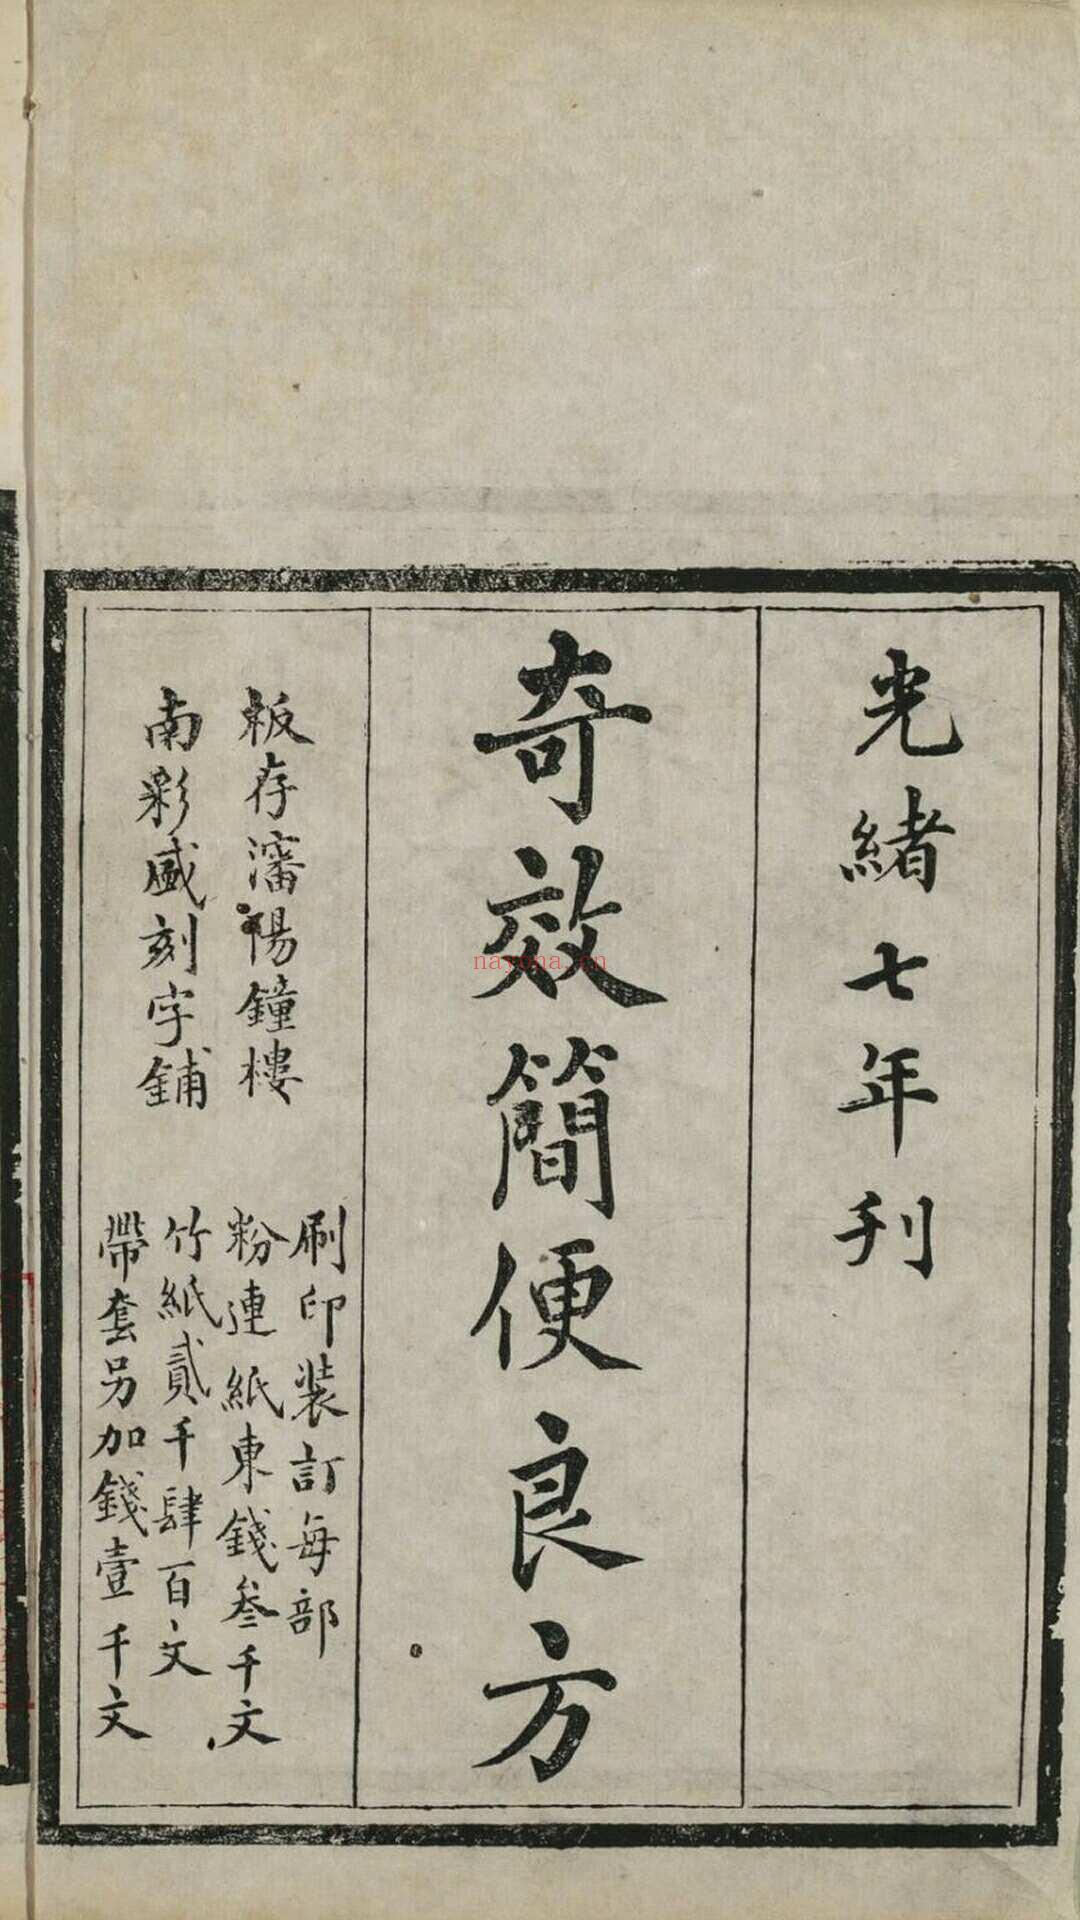 光緒七年刊
奇效簡便良方
板存瀋陽鐘樓
南彩盛刻字鋪
刷印裝訂每部
粉連紙東錢叁千文
竹紙貳千肆百文
帶套另加錢壹千文
nayona.cn